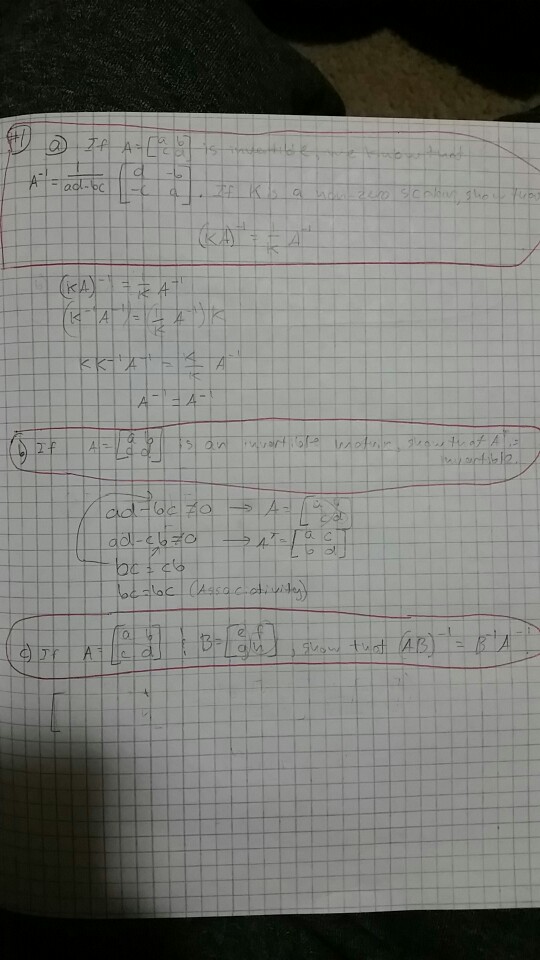 #1 a) If A = [a b; c d] is invertible, we know that
A⁻¹ = 1/(ad-bc) [d -b; -c a]. If K is a non zero scalar, show that
(KA)⁻¹ = 1/K A⁻¹
(KA)⁻¹ = 1/K A⁻¹
(K⁻¹A⁻¹) = (1/K A⁻¹) K
KK⁻¹A⁻¹ = K/K A⁻¹
A⁻¹ = A⁻¹
b) If A = [a b; c d] is an invertible matrix, show that Aᵀ is
invertible.
ad-bc ≠ 0 → A = [a b; c d]
ad-cb ≠ 0 → Aᵀ = [a c; b d]
bc = cb
bc = bc (Assocativity)
c) If A = [a b; c d] & B = [e f; g h], show that (AB)⁻¹ = B⁻¹A⁻¹.
[ +
+